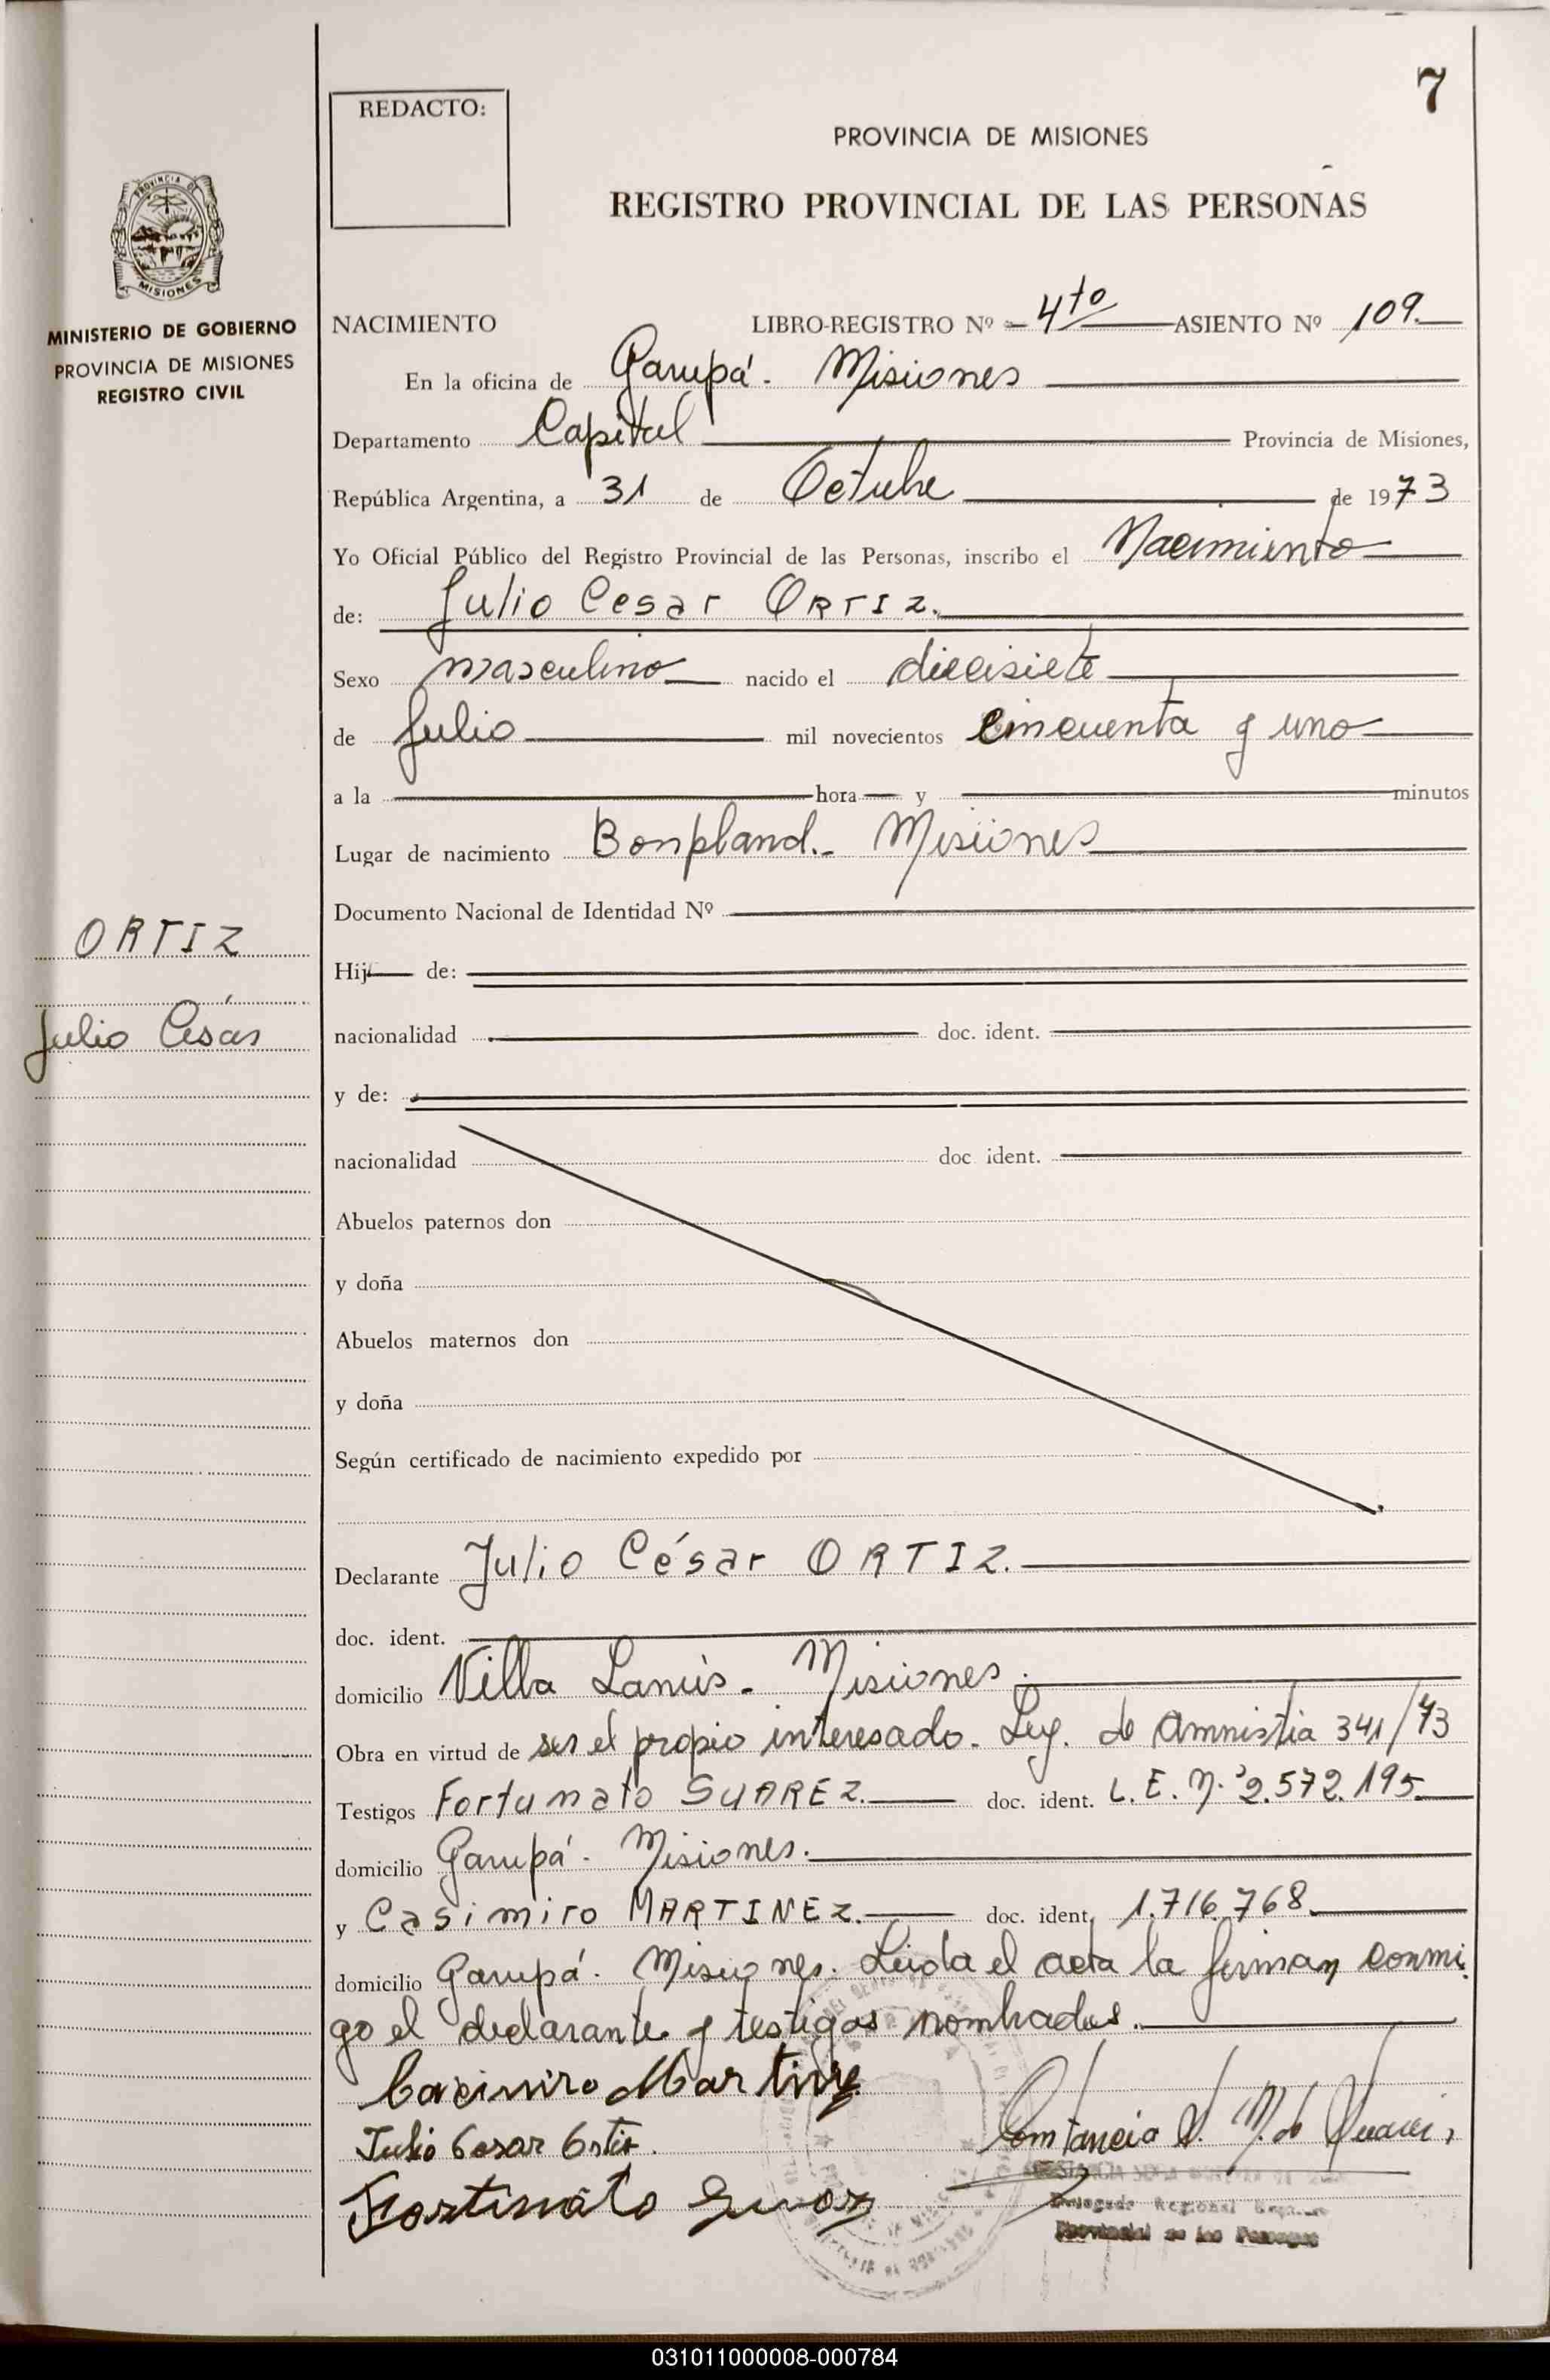 7
REDACTO:
PROVINCIA DE MISIONES
REGISTRO PROVINCIAL DE LAS PERSONAS
PROVINCIA DE
MISIONES
MINISTERIO DE GOBIERNO
PROVINCIA DE MISIONES
REGISTRO CIVIL
NACIMIENTO LIBRO-REGISTRO Nº 4to ASIENTO Nº 109.
En la oficina de Garupá. Misiones
Departamento Capital Provincia de Misiones,
República Argentina, a 31 de Octubre de 1973
Yo Oficial Público del Registro Provincial de las Personas, inscribo el Nacimiento
de: Julio Cesar ORTIZ.
Sexo masculino nacido el diecisiete
de Julio mil novecientos cincuenta y uno
a la hora y minutos
Lugar de nacimiento Bonpland. Misiones
Documento Nacional de Identidad Nº
ORTIZ
Julio César
Hij de:
nacionalidad doc. ident.
y de:
nacionalidad doc. ident.
Abuelos paternos don
y doña
Abuelos maternos don
y doña
Según certificado de nacimiento expedido por
Declarante Julio César ORTIZ.
doc. ident.
domicilio Villa Lanús. Misiones.
Obra en virtud de ser el propio interesado. Ley. de Amnistia 341/73
Testigos Fortunato SUAREZ. doc. ident. L.E.N.º 2.572.195
domicilio Garupá. Misiones.
y Casimiro MARTINEZ. doc. ident. 1.716.768
domicilio Garupá. Misiones. Leida el acta la firman conmi
go el declarante y testigos nombrados.
Casimiro Martine
Julio Cesar Ortiz.
Constancia M. de Suarez
Delegada Regional
Provincial de las Personas
031011000008-000784